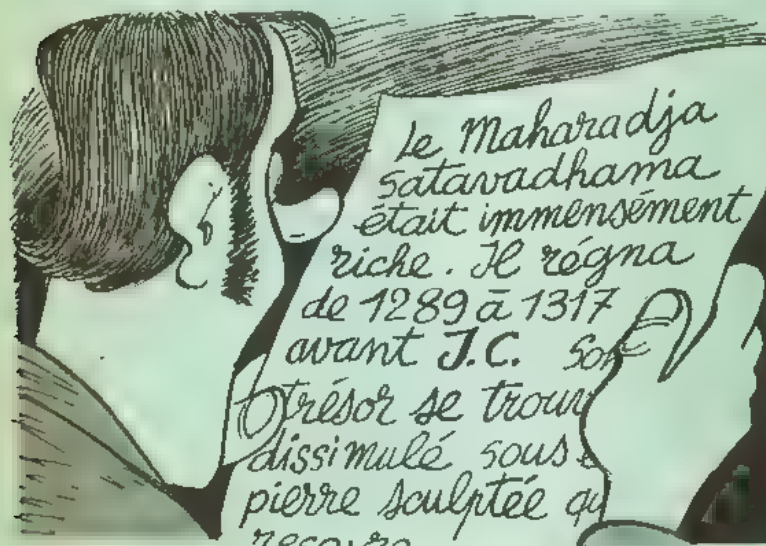 Le Maharadja
Satavadhama
était immensément
riche. Il régna
de 1289 à 1317
avant J.C. Son
trésor se trouv
dissimulé sous
pierre sculptée qu